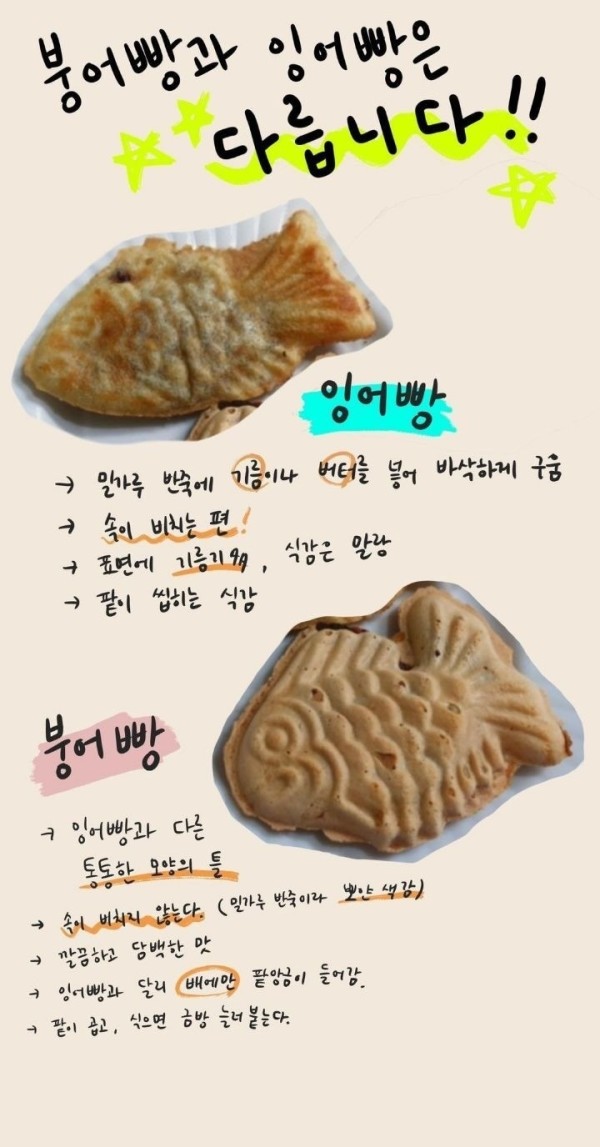 붕어빵과 잉어빵은
다릅니다!!
잉어빵
→ 밀가루 반죽에 기름이나 버터를 넣어 바삭하게 구움
→ 속이 비치는 편!
→ 표면에 기름기 있, 식감은 말랑
→ 팥이 씹히는 식감
붕어빵
→ 잉어빵과 다른
통통한 모양의 틀
→ 속이 비치지 않는다. (밀가루 반죽이라 뽀얀 색감)
→ 깔끔하고 담백한 맛
→ 잉어빵과 달리 배에만 팥앙금이 들어감.
→ 팥이 곱고, 식으면 금방 눌러붙는다.